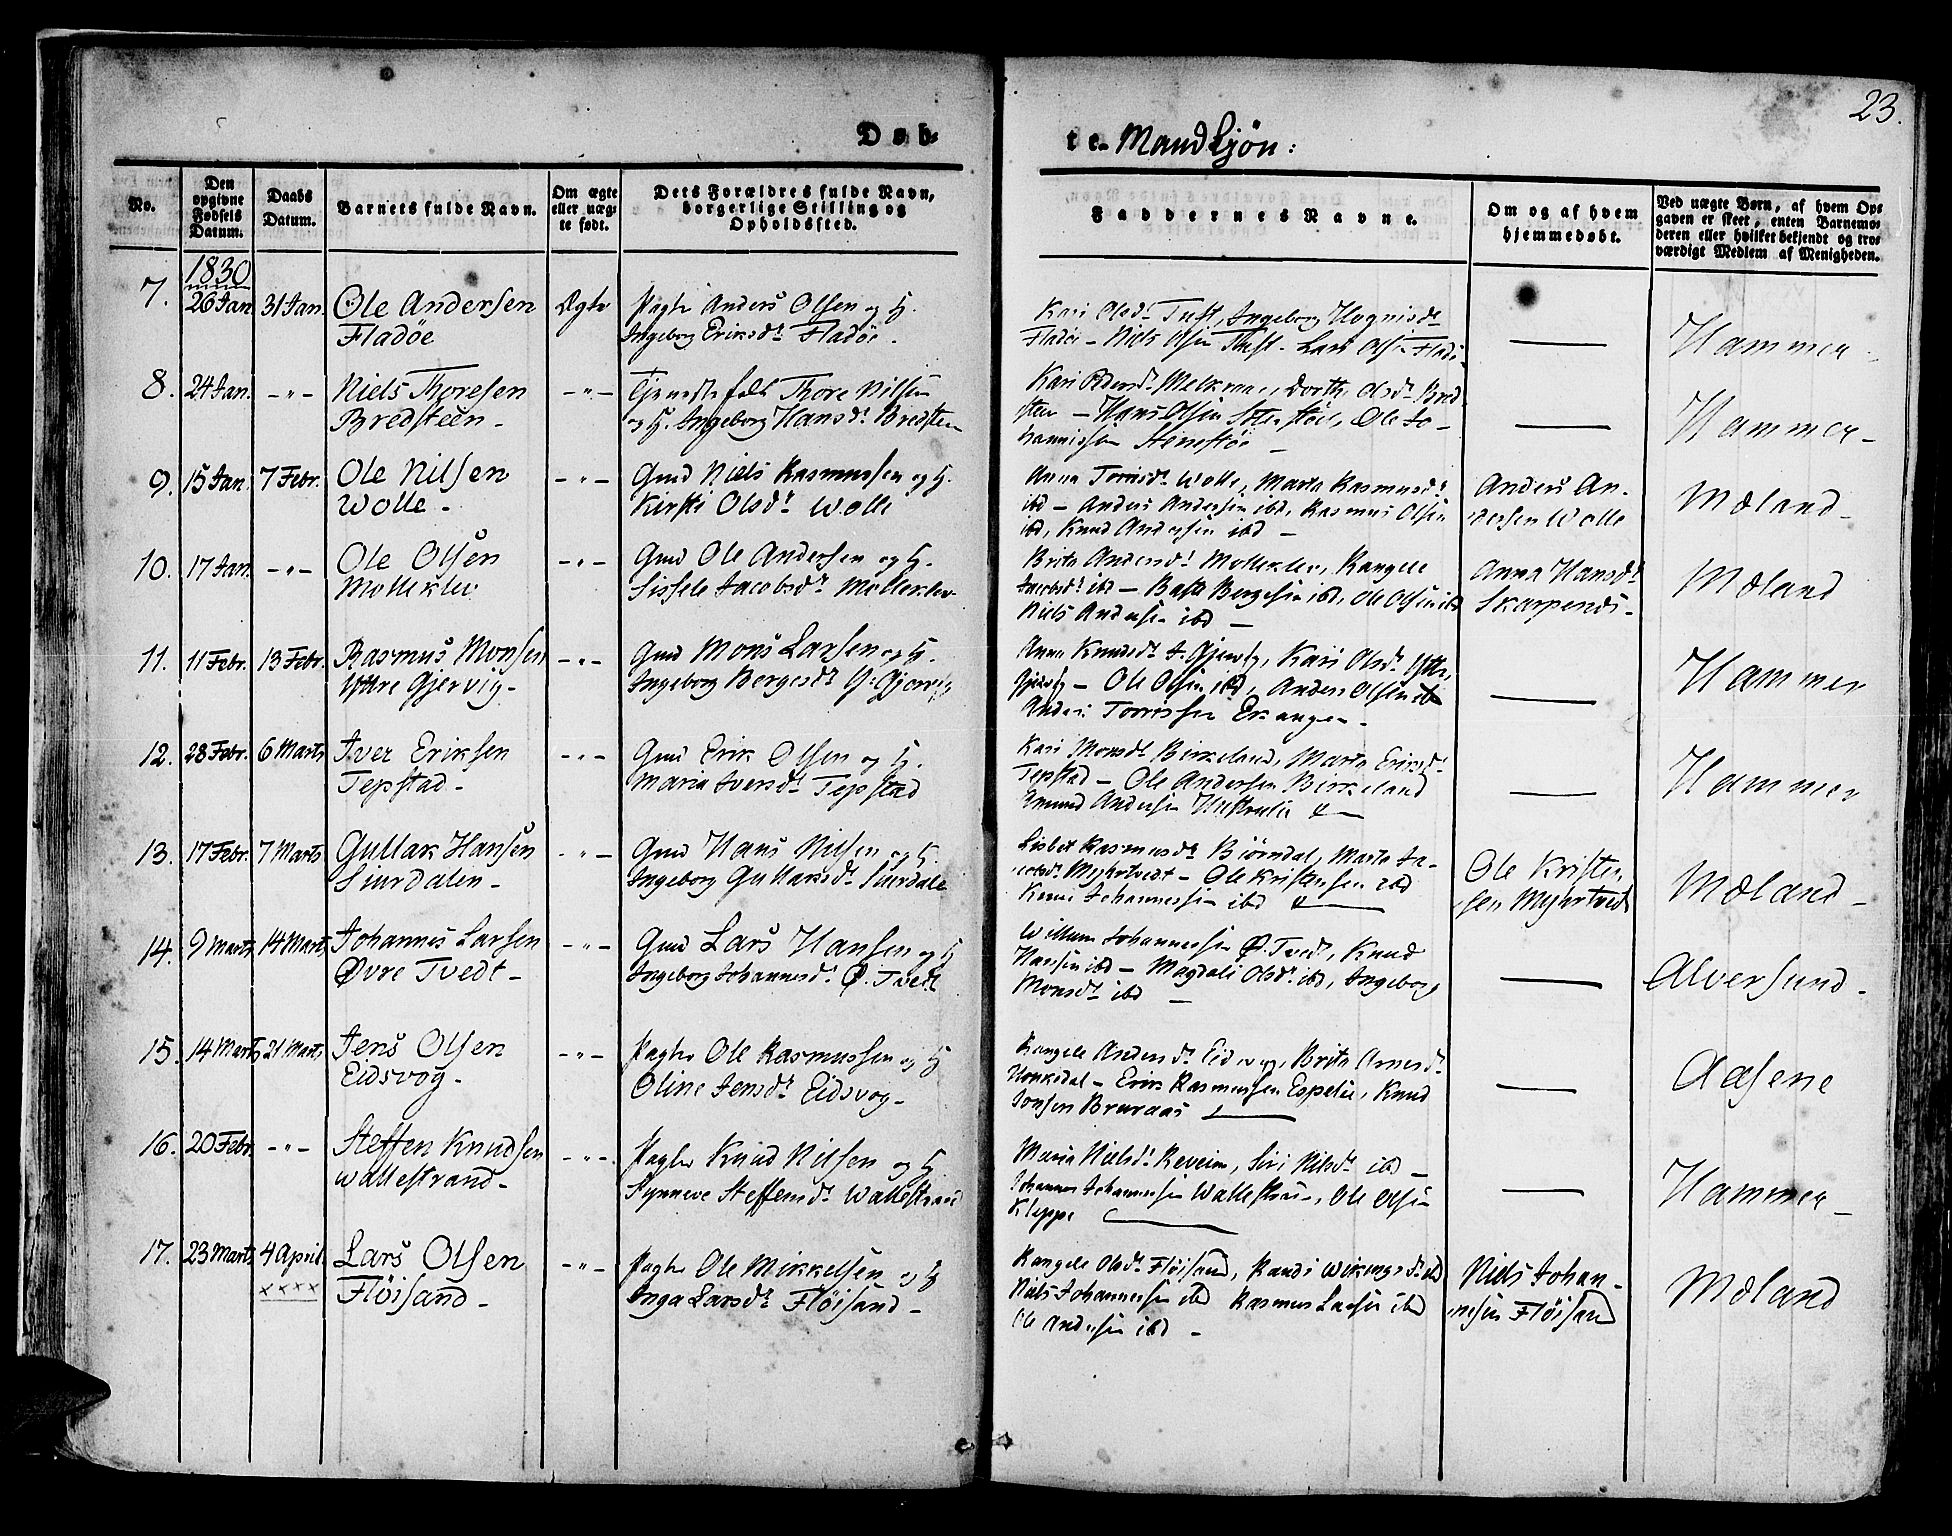 23.
Døb-
te. MandKjøn:
No.
Den
opgivne
Fødsels
Datum.
Daabs
Datum.
Barnets fulde Navn.
Om ægte
eller uæg-
te født.
Dets Forældres fulde Navn,
borgerlige Stilling og
Opholdssted.
Faddernes Navne.
Om og af hvem
hjemmedøbt.
Ved uægte Børn, af hvem Op-
gaven er skeet, enten Barnemo-
deren eller hvilket bekjendt og tro-
værdigt Medlem af Menigheden.
1830
7. 26 Jan. 31 Jan. Ole Andersen Ægte Pagtr Anders Olsen og H.
Fladøe Ingeborg Eriksdr Fladøe.
Kari Olsdr Tuft, Ingeborg
Fladøe – Niels Olsen Tuft. Lars Olsen
Hammer
8. 24 Jan. -"- Niels Thoresen -"- Tjenestefolk Thore Nilsen
Bredsteen- og H. Ingeborg Hansdr Bredsteen
Kari Dorthe Olsdr Bred
steen – Hans Olsen Ole Jo-
hannissen
Hammer-
9. 15 Jan. 7 Febr. Ole Nilsen -"- Gmd Niels Rasmussen og H.
Wolle- Kirsti Olsdr Wolle
Anna Torrisdr Wolle, Marta Rasmusdr
ibd – Anders Andersen ibd, Rasmus Olsen
ibd, Knud Andersen ibd –
Anders An-
dersen Wolle
Mæland-
10. 17 Jan. -"- Ole Olsen -"- Gmd Ole Andersen og H.
Molleklev Sissele Jacobsdr Molleklev
Brita Andersdr Molleklev, Rangele
Jacobsdr ibd – Bergesen ibd, Ole Olsen ibd
Niels Andersen ibd –
Anna Hansdr
Skarpenes-
Mæland
11. 11 Febr. 13 Febr. Rasmus Monsen -"- Gmd Mons Larsen og H.
Yttre Gjervig- Ingeborg Bergesdr Y. Gjervig
Anna Knudsdr Gjervig, Kari Olsdr Yttre
Gjervig – Ole Olsen ibd, Anders Olsen ibd
Anders Torrissen Eikanger-
Hammer
12. 28 Febr. 6 Marts Iver Eriksen -"- Gmd Erik Olsen og H.
Tepstad- Maria Iversdr Tepstad
Kari Monsdr Birkeland, Marta Eriksdr
Tepstad – Ole Andersen Birkeland
Amund Andersen
Hammer
13. 17 Febr. 7 Marts Gullak Hansen -"- Gmd Hans Nilsen og H.
Suurdalen- Ingeborg Gullaksdr Suurdale
Lisbet Rasmusdr Biørndal, Marta Ja-
cobsdr Myhrtvedt – Ole Kristensen ibd
Knud Johannessen ibd
Ole Kristen-
sen Myhrtvedt
Mæland-
14. 9 Marts 14 Marts Johannes Larsen -"- Gmd Lars Hansen og H
Øvre Tvedt- Ingeborg Johannesdr Ø. Tvedt
Willum Johannessen Ø. Tvedt, Knud
Hansen ibd – Magdali Olsdr ibd, Ingeborg
Monsdr ibd –
Alversund-
15. 14 Marts 21 Marts Jens Olsen -"- Pagtr Ole Rasmussen og H
Eidsvog- Oline Jensdr Eidsvog-
Rangele Andersdr Eidsvog, Brita Arnesdr
– Erik Rasmussen Espelie, Knud
Jonsen Bruraas
Aasene
16. 20 Febr. -"- Steffen Knudsen -"- Pagtr Knud Nilsen og H
Wallestrand- Synneve Steffensdr Wallestrand
Maria Nielsdr Reveim, Siri Nilsdr ibd –
Johannes Johannessen Wallestrand, Ole Olsen
Kleppe
Hammer-
17. 23 Marts 4 April Lars Olsen -"- Pagtr Ole Mikkelsen og H
xxxx Fløisand- Inga Larsdr Fløisand-
Rangele Olsdr Fløisand, Randi Wikingsdr ibd
Niels Johannessen ibd Rasmus Larsen ibd
Ole Andersen ibd –
Niels Johan-
nesen Fløisand
Mæland